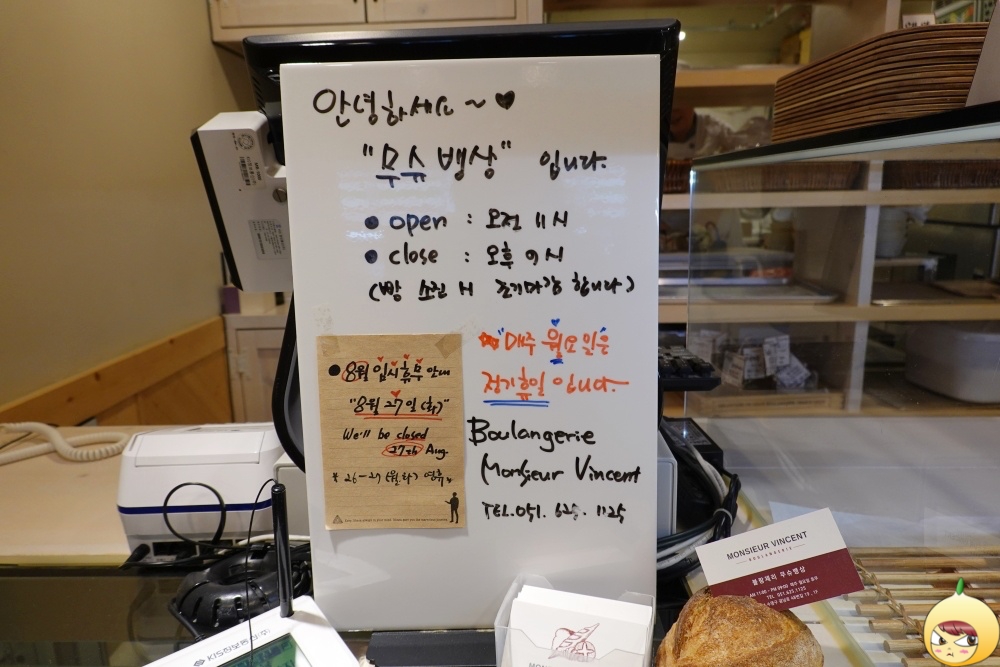 안녕하세요~♥
"무슈 뱅상" 입니다.
● open : 오전 11시
● close : 오후 9시
(빵 소진 시 조기마감 합니다)
"매주 월요일은
정기휴일 입니다.
Boulangerie
Monsieur Vincent
TEL.051. 625. 1125
● 8월 임시휴무 안내
"8월 27일 (화)"
We'll be closed
27th Aug.
* 26-27 (월,화) 연휴
MONSIEUR VINCENT
BOULANGERIE
불랑제리 무슈뱅상
AM 11:00 - PM 09:00
TEL. 051.625.1125